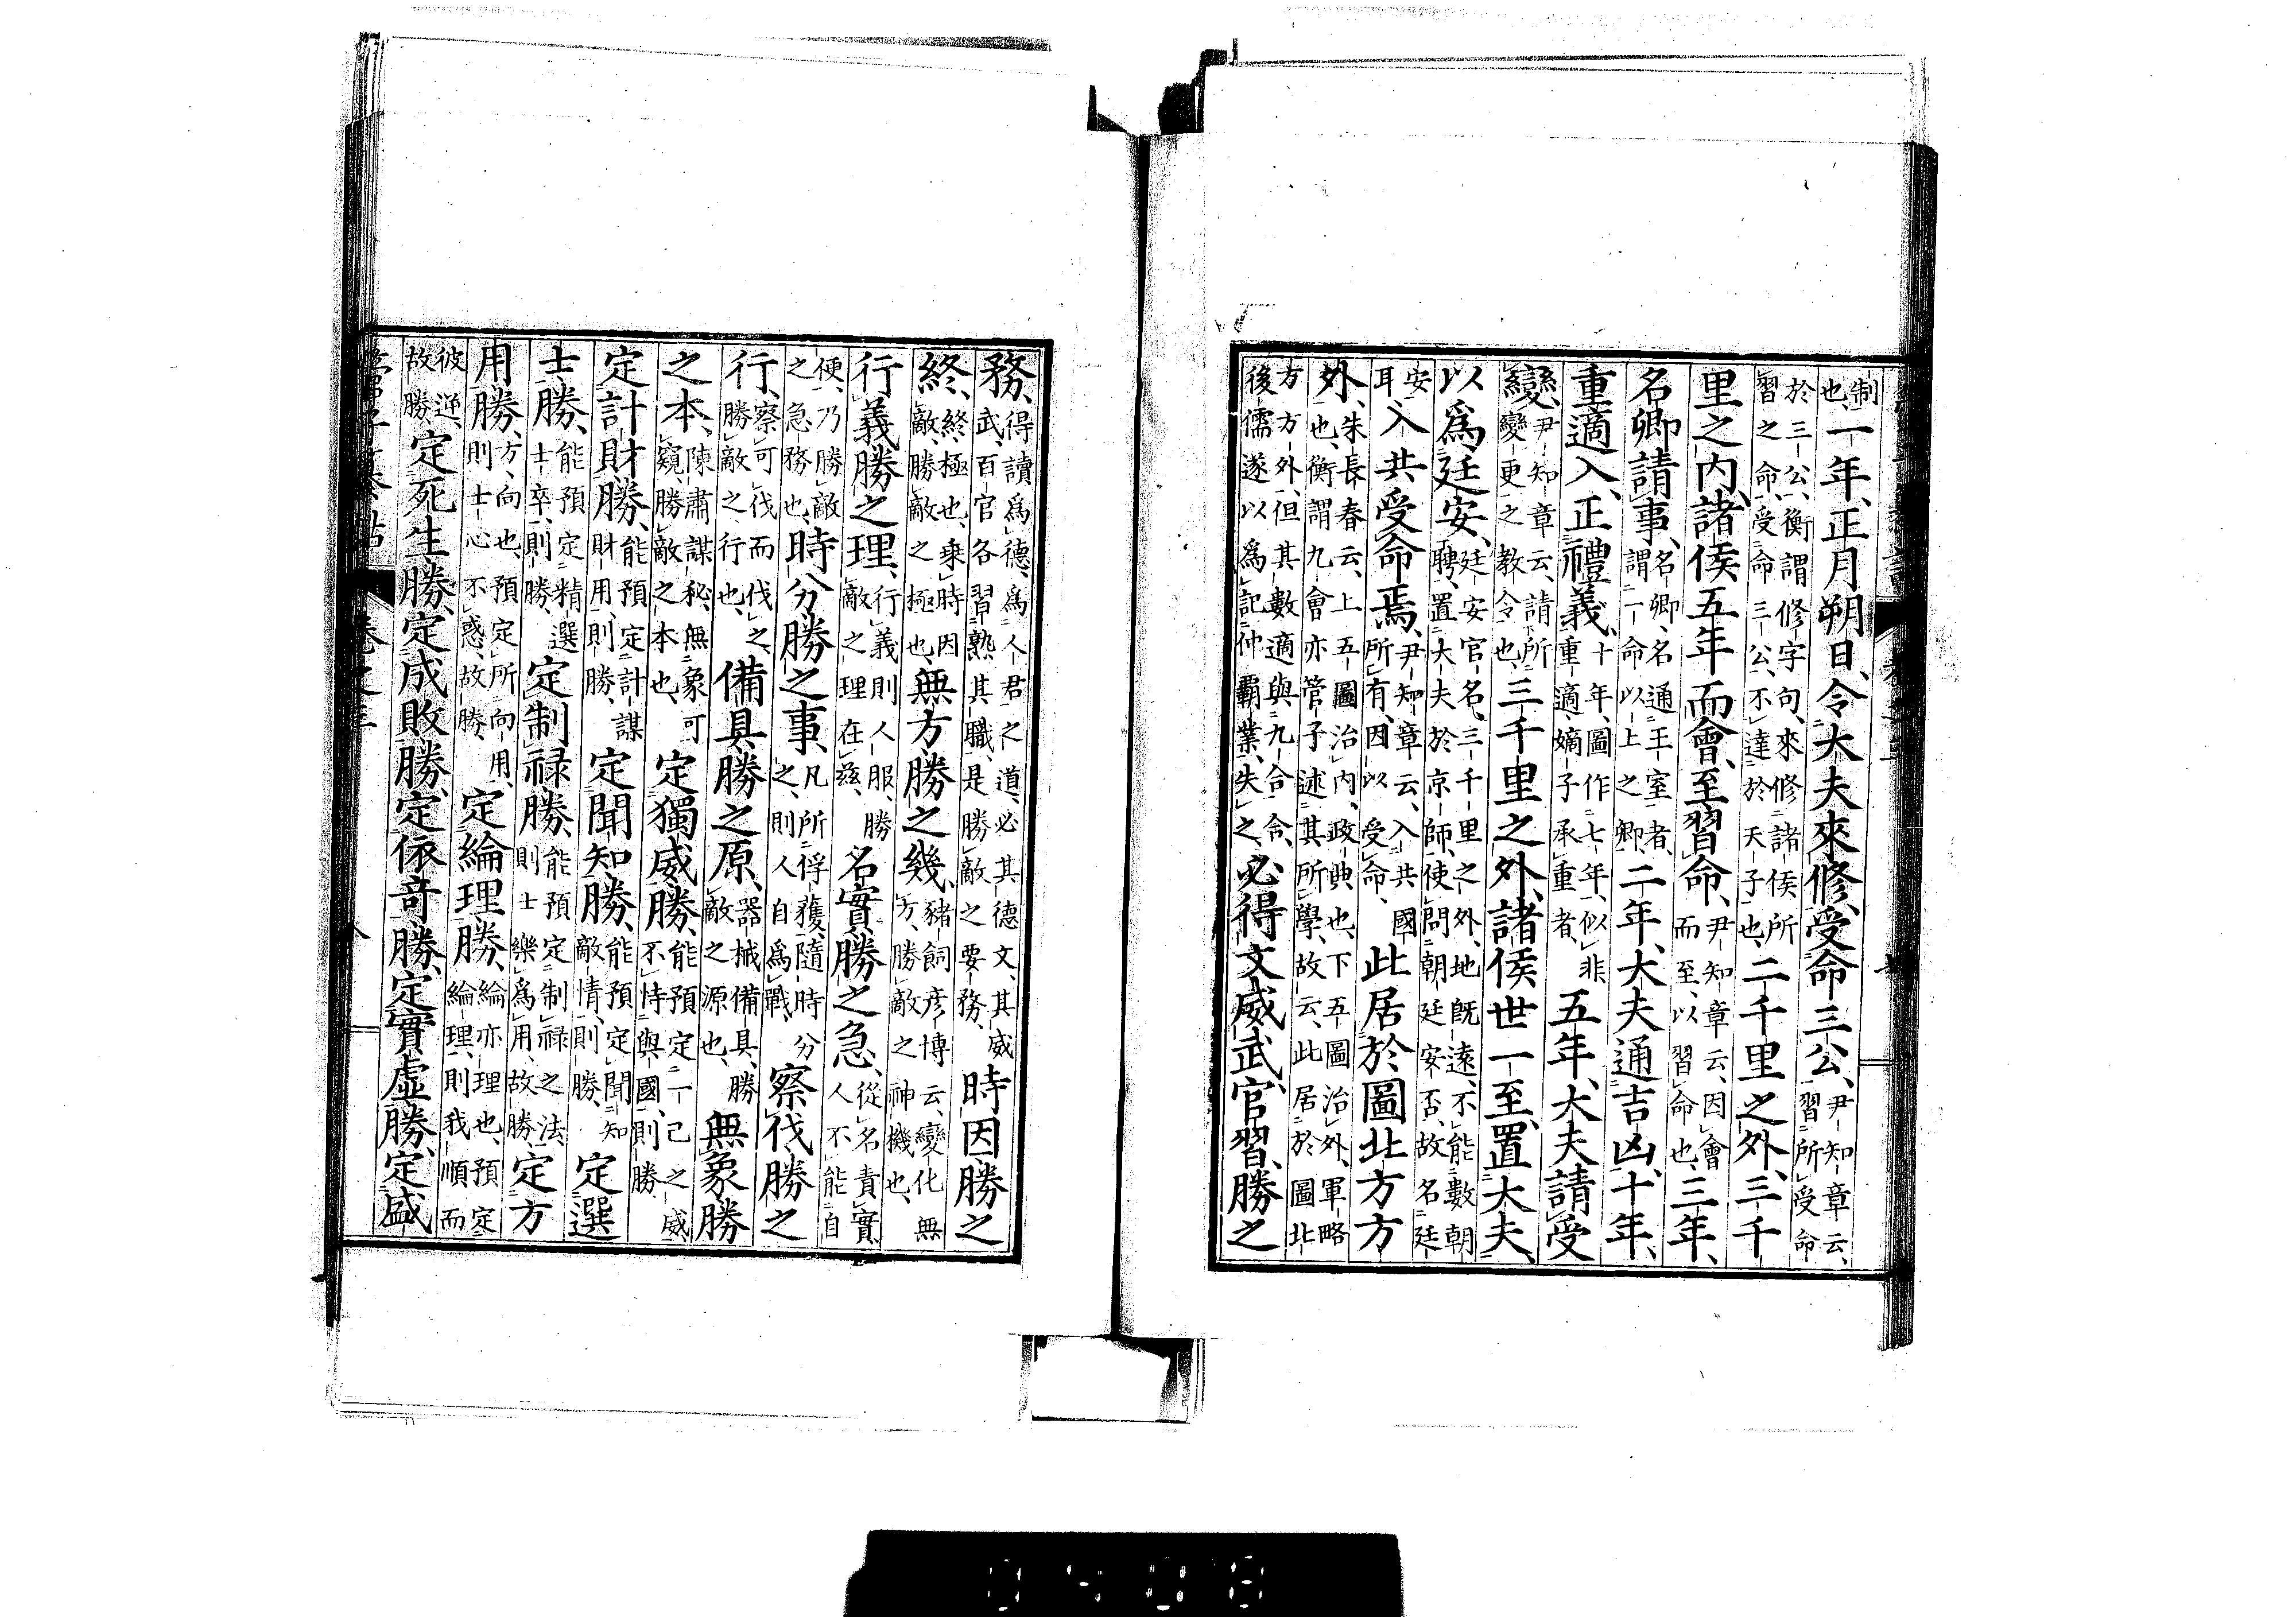 制也一年正月朔日令大夫來修受命三公尹知章云習所受命
於三公衡謂修字句來修諸侯所習之命受命三公不達於天子也二千里之外三千
里之內諸侯五年而會至習命尹知章云因會而至以習命也三年
名卿請事名卿名通王室者謂一命以上之卿二年大夫通吉凶十年
重適入正禮義十年圖作七年似非重適嫡子承重者五年大夫請受
變尹知章云請所變更之教令也三千里之外諸侯世一至置大夫
以爲廷安廷安官名三千里之外地旣遠不能數朝聘置大夫於京師使問朝廷安否故名廷
安耳入共受命焉尹知章云入共國所有因以受命此居於圖北方方
外朱長春云上五圖治內政典也下五圖治外軍略也衡謂九會亦管子述其所學故云此居於圖北
方方外但其數適與九合合後儒遂以爲記仲霸業失之必得文威武官習勝之
務得讀爲德爲人君之道必其德文其威武百官各習熟其職是勝敵之要務時因勝之
終終極也乘時因敵勝敵之極也無方勝之幾豬飼彦博云變化無方勝敵之神機也
行義勝之理行義則人服勝敵之理在茲名實勝之急從名責實人不能自
便乃勝敵之急務也時分勝之事凡所俘獲隨時分之則人自爲戰察伐勝之
行察可伐而伐之勝敵之行也備具勝之原器械備具勝敵之源也無象勝
之本陳肅謀秘無象可窺勝敵之本也定獨威勝能預定一己之威不恃與國則勝
定計財勝能預定計謀財用則勝定聞知勝能預定聞知敵情則勝定選
士勝能預定精選士卒則勝定制祿勝能預定制祿之法則士樂爲用故勝定方
用勝方向也預定所向用則士心不惑故勝定綸理勝綸亦理也預定綸理則我順而
彼逆故勝定死生勝定成敗勝定依奇勝定實虛勝定盛